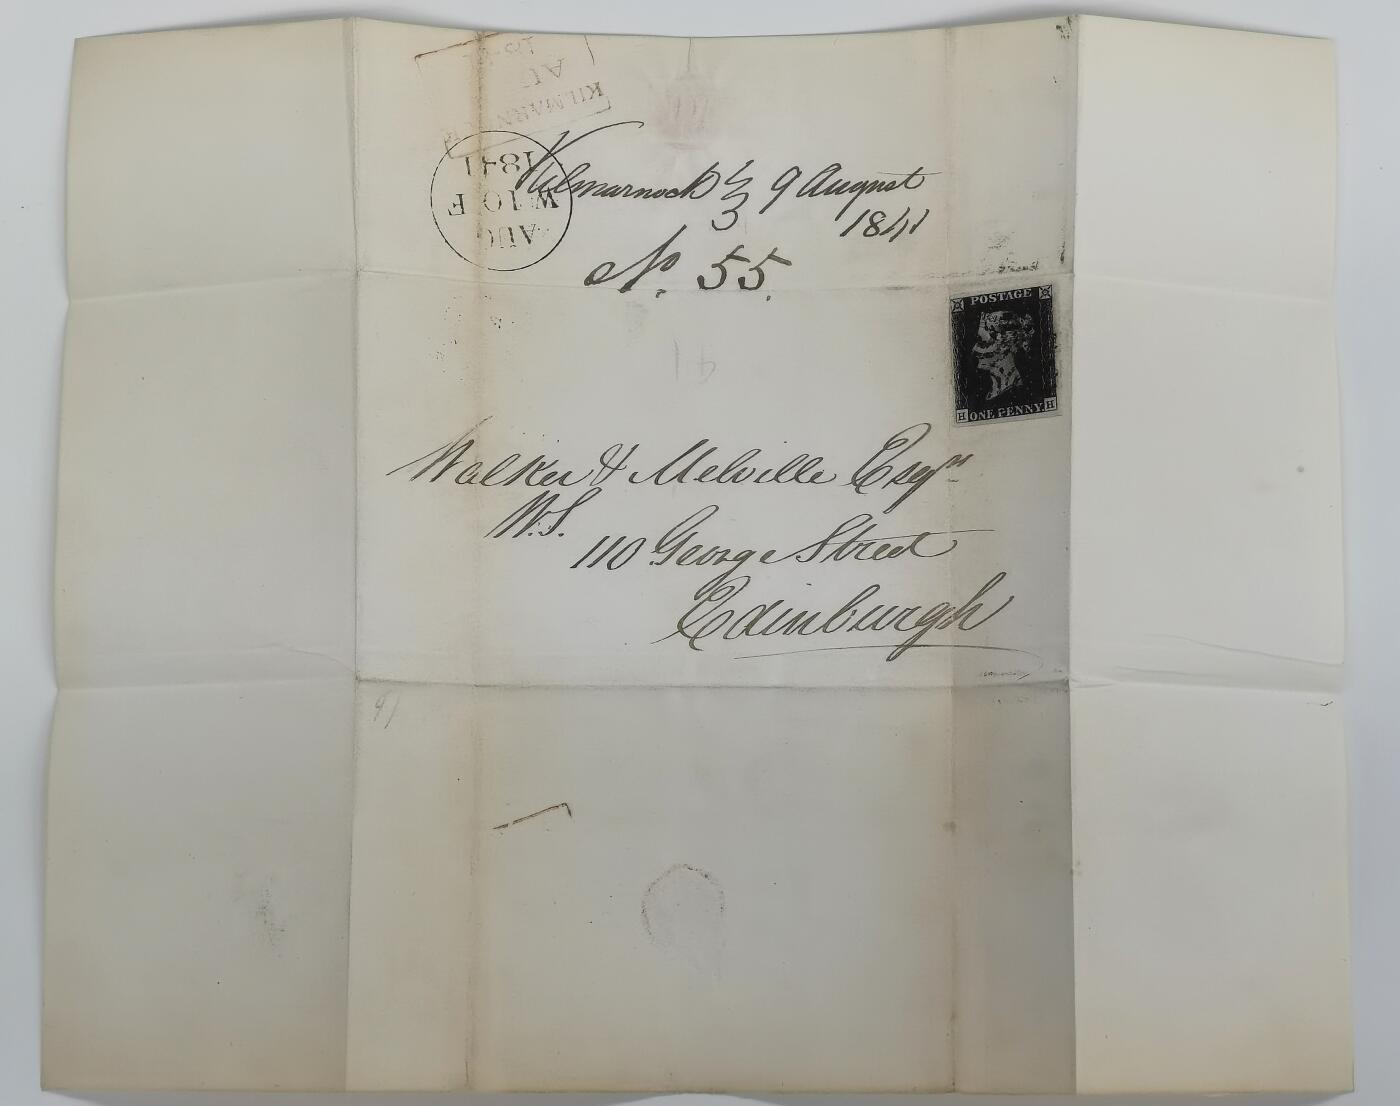 KILMARNOCK
AU
1841
W 10 F
AUG
Kilmarnock 9 August
1841
No. 55.
POSTAGE
H ONE PENNY H
41
Walker & Melville Esqrs
W.S.
110 George Street
Edinburgh